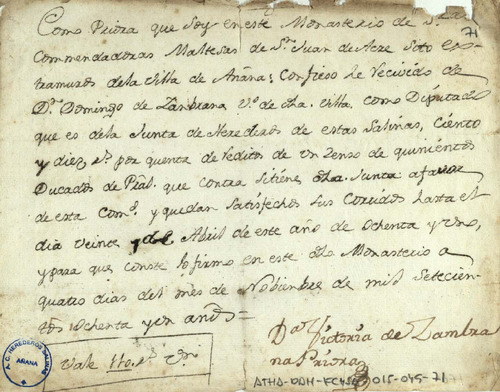 Como Priora que soy en este Monasterio de Sras
71
Commendadoras Maltesas de Sn Juan de Acre Soto ex-
tramuros dela villa de Añana; Confieso he Recivido de
Dn Domingo de Zambrana Vº de dha. villa, como Diputado
que es dela Junta de Herederos de estas Salinas, Ciento
y diez rs por quenta de Reditos de un Zenso de quinientos
Ducados de Pral. que contra si tiene dha. Junta a favor
de esta Comd. y quedan satisfechos sus Corridos hasta el
dia veinte y de Abril de este año de ochenta y uno,
y para que conste lo firmo en este dho Monasterio a
quatro dias del mes de Nobiembre de mil Setecien-
tos ochenta y un años=
Da Victoria de Zambra
na Priora
Vale 110 rs Vn
A.C. HEREDEROS SALINAS
AÑANA
ATHA-DDH-FCASA 015-045-71